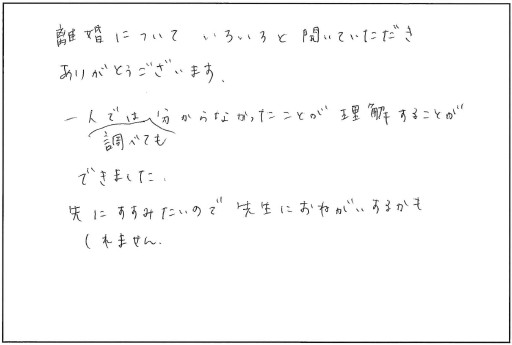 離婚について いろいろと聞いていただき
ありがとうございます。
一人では分からなかったことが 理解することが
調べても
できました。
先にすすみたいので 先生におねがいするかも
しれません。